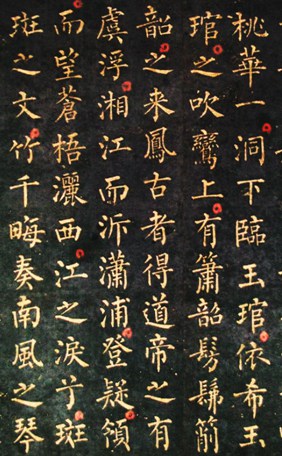 桃華一洞下臨玉琯依希玉
琯之吹鸞上有簫韶髣髴簫
韶之来鳳古者得道帝之有
虞浮湘江而泝瀟浦登疑領
而望蒼梧灑西江之淚于斑
斑之文竹千畮奏南風之琴